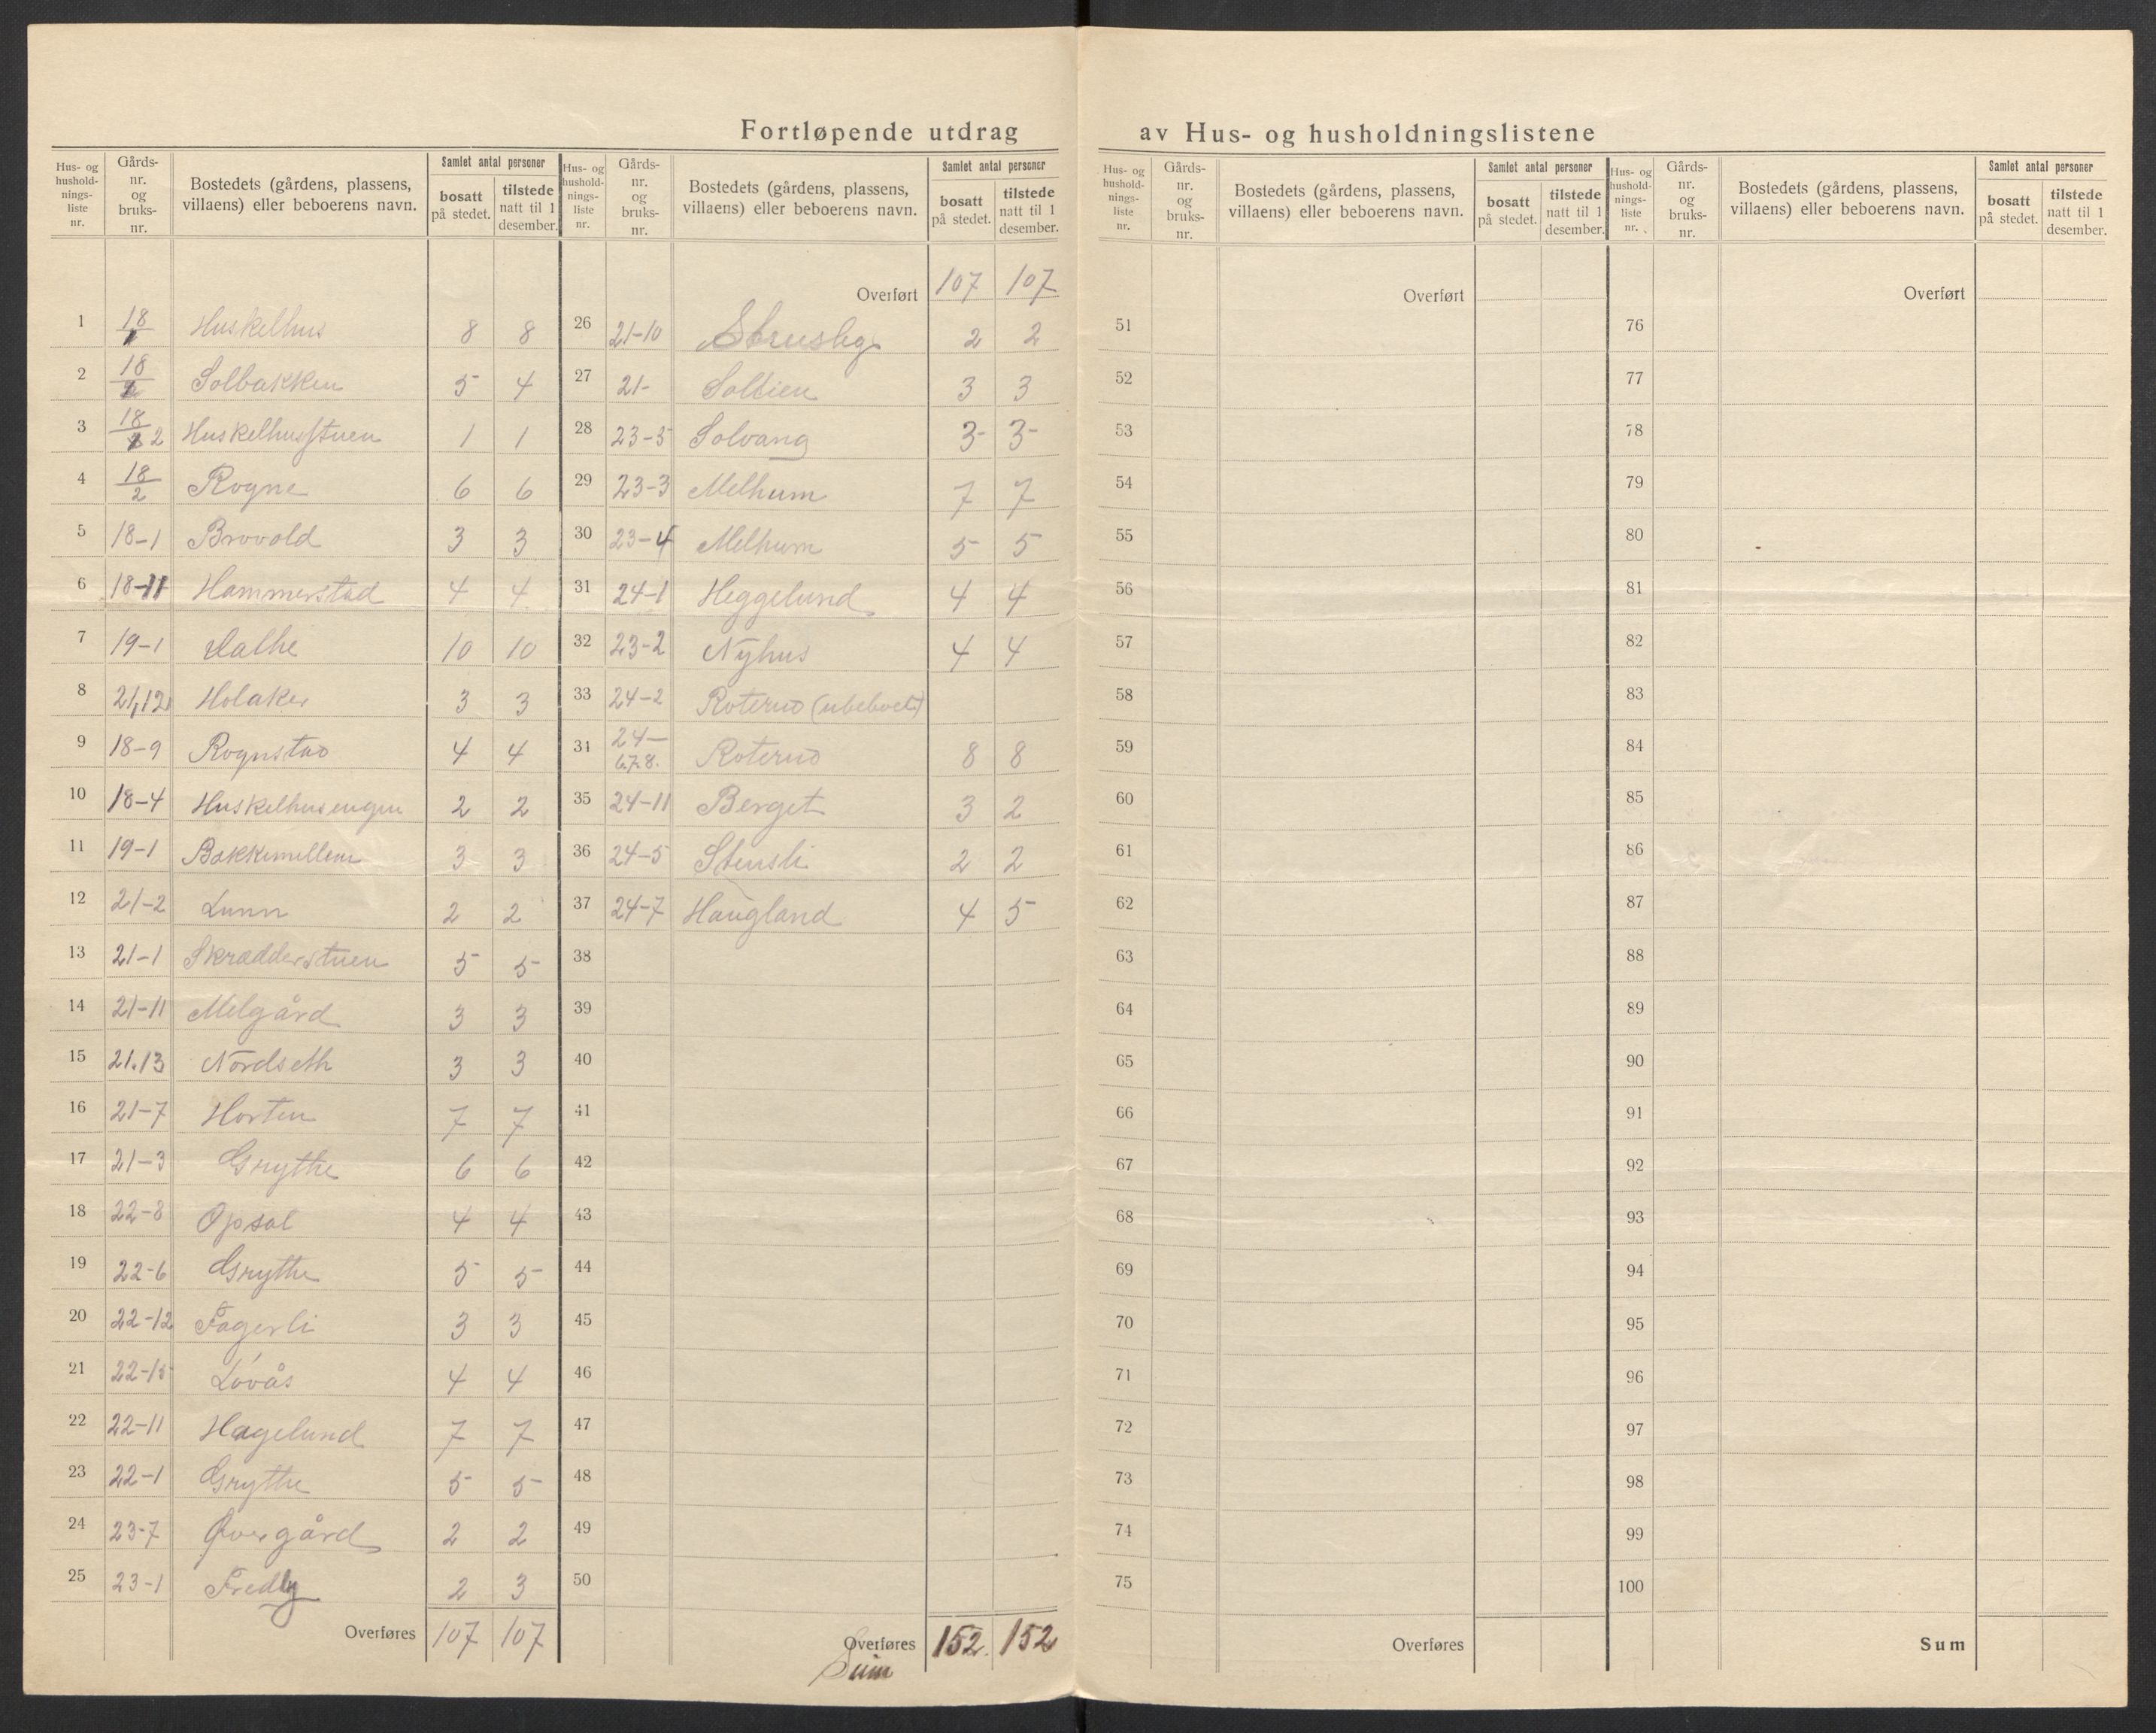 Fortløpende utdrag av Hus- og husholdningslistene
Hus- og husholdnings-liste nr. | Gårds-nr. og bruks-nr. | Bostedets (gårdens, plassens, villaens) eller beboerens navn. | Samlet antal personer | bosatt på stedet. | tilstede natt til 1 desember.
1 18/1 Huskelhus 8 8
2 18/2 Solbakken 5 4
3 18/2 Huskelhusstuen 1 1
4 18/2 Rogne 6 6
5 18-1 Brovold 3 3
6 18-11 Hammerstad 4 4
7 19-1 10 10
8 21,12 Holaker 3 3
9 18-9 Rognstad 4 4
10 18-4 Huskelhusengen 2 2
11 19-1 Bakkemellem 3 3
12 21-2 Lunn 2 2
13 21-1 Skrædderstuen 5 5
14 21-11 Melgård 3 3
15 21.13 Nordseth 3 3
16 21-7 Horten 7 7
17 21-3 Grythe 6 6
18 22-8 Opsal 4 4
19 22-6 Grythe 5 5
20 22-12 Fagerli 3 3
21 22-15 Lövås 4 4
22 22-11 Hagelund 7 7
23 22-1 Grythe 5 5
24 23-7 Øvergård 2 2
25 23-1 Fredly 2 3
Overføres 107 107
Hus- og husholdnings-liste nr. | Gårds-nr. og bruks-nr. | Bostedets (gårdens, plassens, villaens) eller beboerens navn. | Samlet antal personer | bosatt på stedet. | tilstede natt til 1 desember.
Overført 107 107
26 21-10 2 2
27 21- Soltien 3 3
28 23-5 Solvang 3- 3-
29 23-3 Melhum 7 7
30 23-4 Melhum 5 5
31 24-1 Heggelund 4 4
32 23-2 Nyhus 4 4
33 24-2 Roterud (ubeboet)
34 24-6.7.8. Roterud 8 8
35 24-11 Berget 3 2
36 24-5 Stensli 2 2
37 24-7 Haugland 4 5
38
39
40
41
42
43
44
45
46
47
48
49
50
Overføres 152. 152
Sum
Hus- og husholdnings-liste nr. | Gårds-nr. og bruks-nr. | Bostedets (gårdens, plassens, villaens) eller beboerens navn. | Samlet antal personer | bosatt på stedet. | tilstede natt til 1 desember.
Overført
51
52
53
54
55
56
57
58
59
60
61
62
63
64
65
66
67
68
69
70
71
72
73
74
75
Overføres
Hus- og husholdnings-liste nr. | Gårds-nr. og bruks-nr. | Bostedets (gårdens, plassens, villaens) eller beboerens navn. | Samlet antal personer | bosatt på stedet. | tilstede natt til 1 desember.
Overført
76
77
78
79
80
81
82
83
84
85
86
87
88
89
90
91
92
93
94
95
96
97
98
99
100
Sum